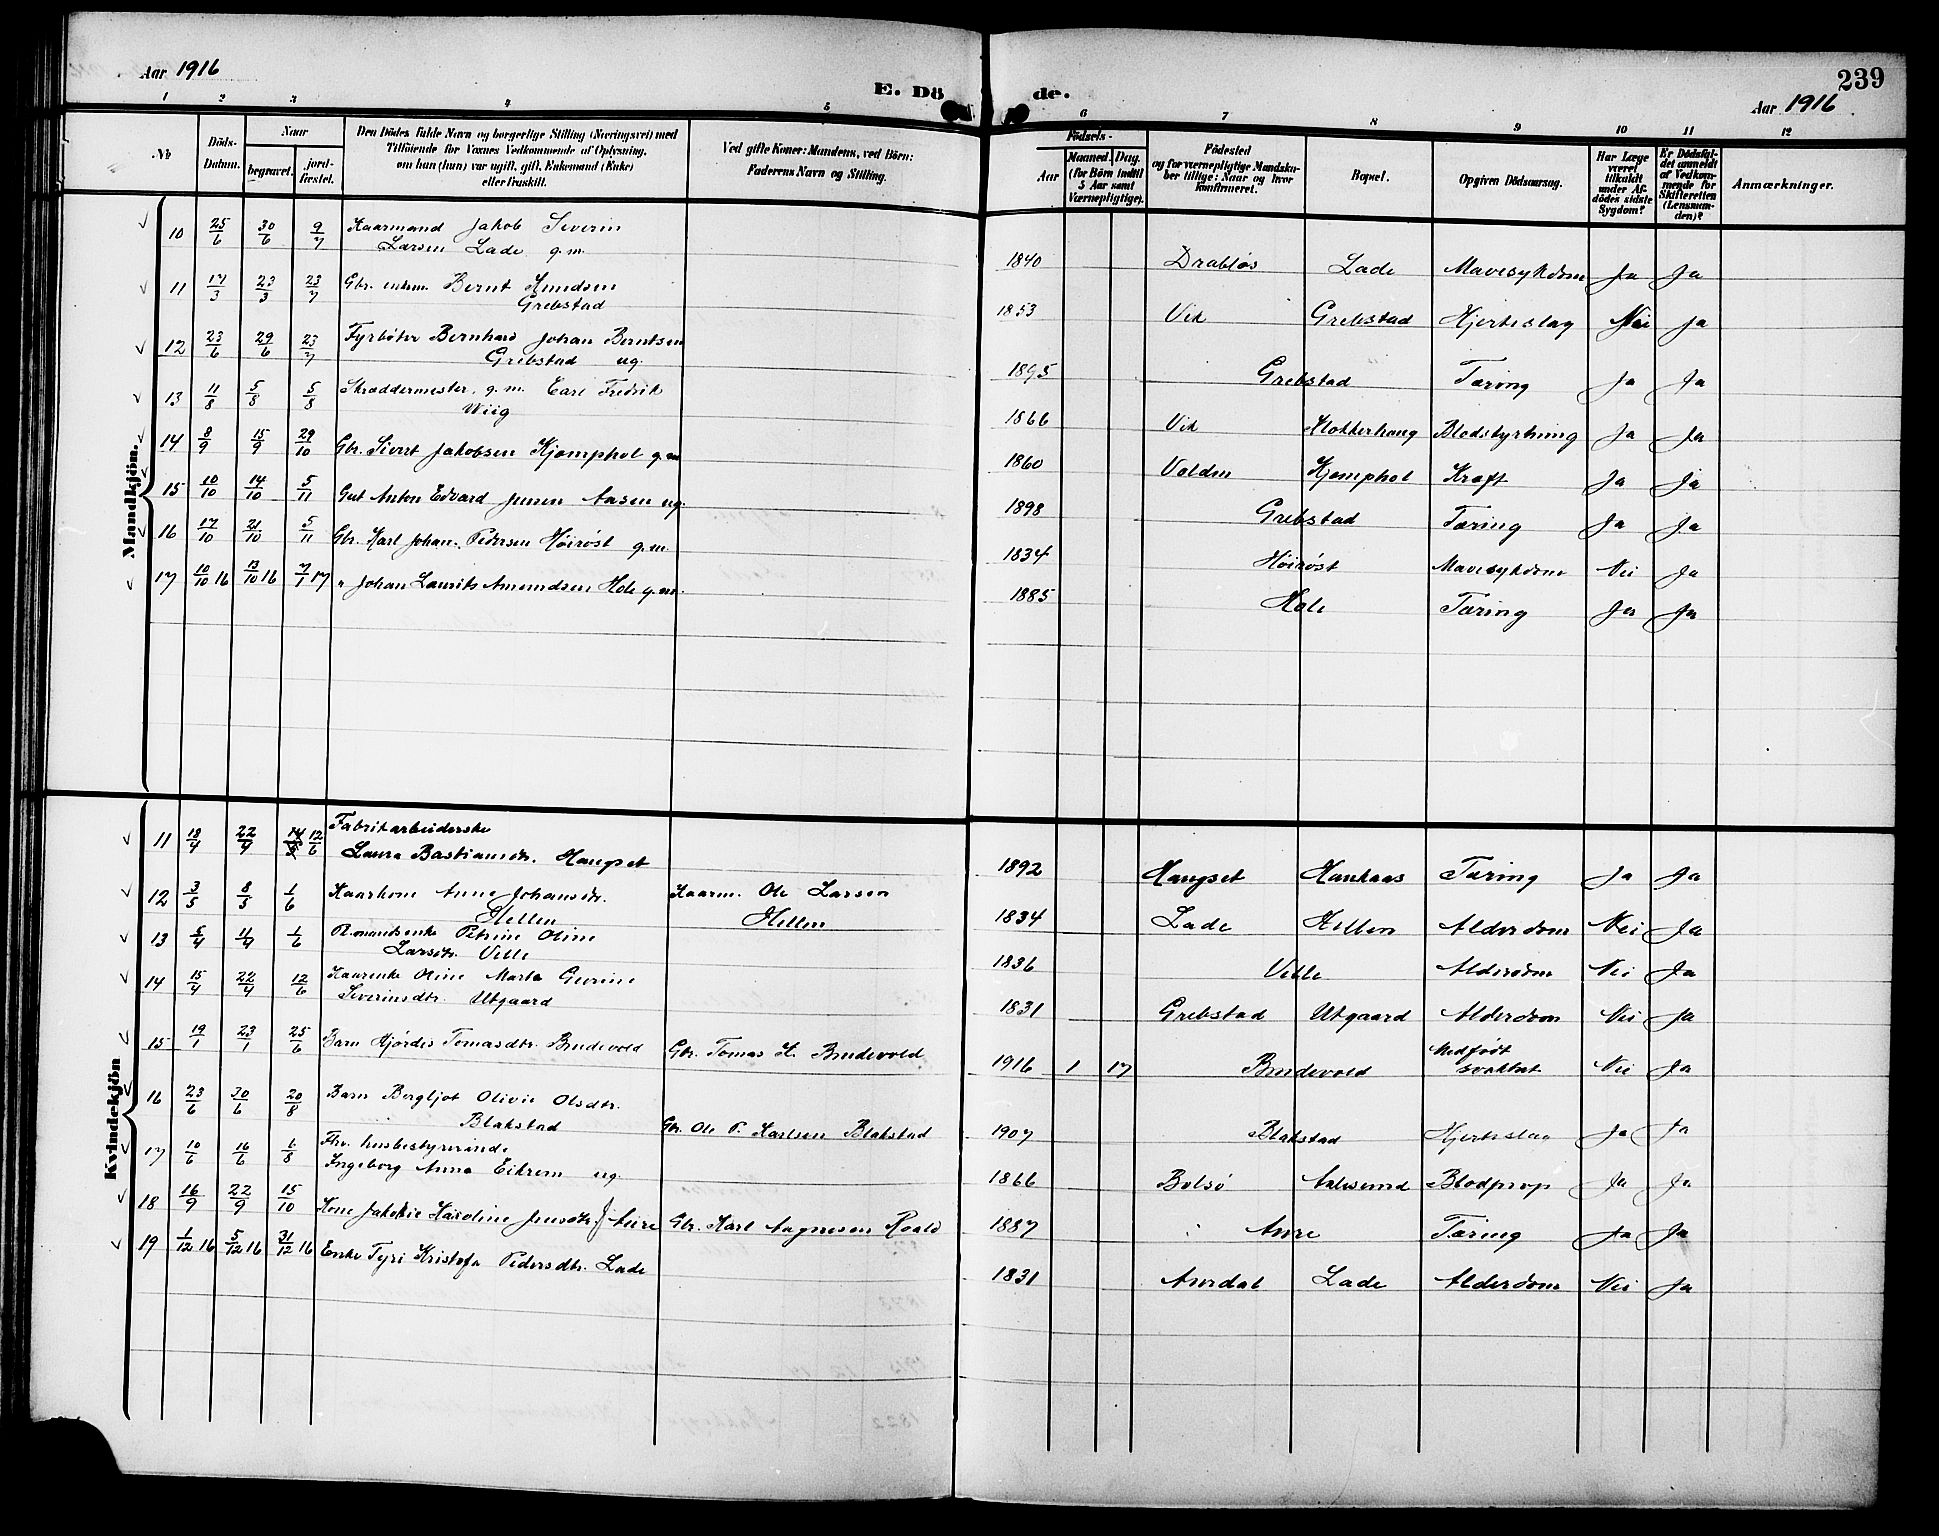 Aar 1916
E. Döde.
239
Aar 1916
1 2 3 4 5 6 7 8 9 10 11 12
No
Döds-Datum.
Naar
begravet.
jord-fæstet.
Den Dödes fulde Navn og borgerlige Stilling (Næringsvei) med
Tilföiende for Voxnes Vedkommende af Oplysning,
om han (hun) var ugift, gift, Enkemand (Enke)
eller fraskilt.
Ved gifte Koner: Mandens, ved Börn:
Faderens Navn og Stilling.
Födsels-
Aar
Maaned. Dag.
(for Börn indtil
5 Aar samt
Værnepligtige).
Födested
og for værnepligtige Mandska-
ber tillige: Naar og hvor
konfirmeret.
Bopæl.
Opgiven Dödsaarsag.
Har Læge
været
tilkaldt
under Af-
dödes sidste
Sygdom?
Er Dödsfal-
det anmeldt
af Vedkom-
mende for
Skifteretten
(Lensman-
den)?
Anmærkninger.
Mandkjön.
10 25/6 30/6 9/7 Kaarmand Jakob Severin
Larsen Lade g.m. 1840 Drabløs Lade Mavesykdom Ja Ja
11 17/3 23/3 23/7 Gbr. enkem. Bernt Knudsen
Grebstad 1853 Vik Grebstad Hjerteslag Nei Ja
12 23/6 29/6 23/7 Fyrbøter Bernhard Johan Berntsen
Grebstad ug. 1895 Grebstad Tæring Ja Ja
13 11/8 5/8 5/8 Skræddermester, g.m. Carl Fredrik
Wiig 1866 Vik Klokkerhaug Blodstyrtning Ja Ja
14 8/9 15/9 29/10 Gbr. Sivert Jakobsen Kjemphol g.m 1860 Valden Kjemphol Kræft Ja Ja
15 10/10 14/10 5/11 Gut Anton Edvard Jensen Aasen ug. 1898 Grebstad Tæring Ja Ja
16 17/10 21/10 5/11 Gbr. Karl Johan Pedersen Høirøst g.m. 1834 Høirøst Mavesykdom Nei Ja
17 10/10 16 13/10 16 7/1 17 " Johan Laurits Amundsen Hole g.m. 1885 Hole Tæring Ja Ja
Kvindekjön
11 18/4 22/4 12/6 Fabrikarbeiderske
Laura Bastiansdtr. Haugset 1892 Haugset Haukaas Tæring Ja Ja
12 3/5 8/5 1/6 Kaarkone Anne Johansdtr.
Hellen Kaarm. Ole Larsen
Hellen 1834 Lade Hellen Alderdom Nei Ja
13 5/4 11/4 1/6 Petrine Oline
Larsdtr. Velle 1836 Velle Alderdom Nei Ja
14 15/4 22/4 12/6 Kaarenke Oline Marta Gurine
Severinsdtr. Utgaard 1831 Grebstad Utgaard Alderdom Nei Ja
15 19/1 23/1 25/6 Barn Hjørdis Tomasdtr. Brudevold Gbr. Tomas K. Brudevold 1916 1 17 Brudevold Medfødt
svakhet Nei Ja
16 23/6 30/6 20/8 Barn Bergljot Olivie Olsdtr.
Blakstad Gbr. Ole P. Karlsen Blakstad 1907 Blakstad Hjerteslag Ja Ja
17 10/6 16/6 1/8 Fhv. husbestyrerinde
Ingeborg Anna Eikrem ug. 1866 Bolsø Aalesund Blodprop Ja Ja
18 16/9 22/9 15/10 Kone Jakobie Karoline Jensdtr. Aure Gbr. Karl Aagnesen Roald 1887 Aure Tæring Ja Ja
19 1/12 16 5/12 16 31/12 16 Enke Tyri Kristofa Pedersdtr. Lade 1831 Aurdal Lade Alderdom Nei Ja